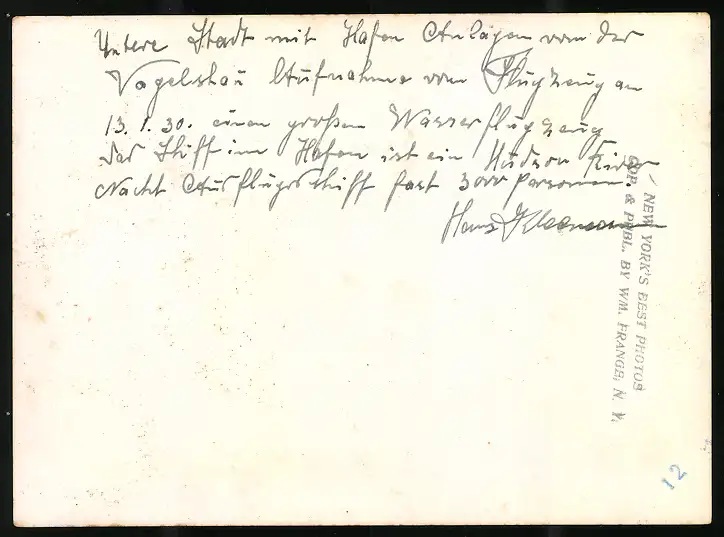 Untere Stadt mit Hafen Anlagen von der
Vogelschau Aufnahme vom Flugzeug am
13.1.30. einen großen Wasserflugzeug
das Schiff im Hafen ist ein Hudson River
Nacht Ausflugsschiff fast 3000 Personen.
Hans
NEW YORK'S BEST PHOTOS
COP. & PUBL. BY WM. FRANGE, N. Y.
12